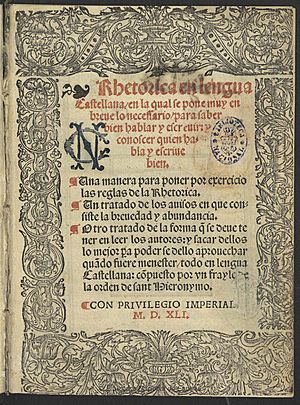 Rhetorica en lengua
Castellana, en la qual se pone muy en
breue lo necessario, para saber
bien hablar y escreuir: y
conoscer quien ha-
bla y escriue
bien.
¶ Una manera para poner por exercicio
las reglas de la Rhetorica.
¶ Un tratado de los auisos en que con-
siste la breuedad y abundancia.
¶ Otro tratado de la forma q̃ se deue te-
ner en leer los autores: y sacar dellos
lo mejor pa poder se dello aprouechar
quãdo fuere menester, todo en lengua
Castellana: cõpuesto por vn frayle de
la orden de sant Hieronymo.
¶ CON PRIVILEGIO IMPERIAL
M. D. XLI.